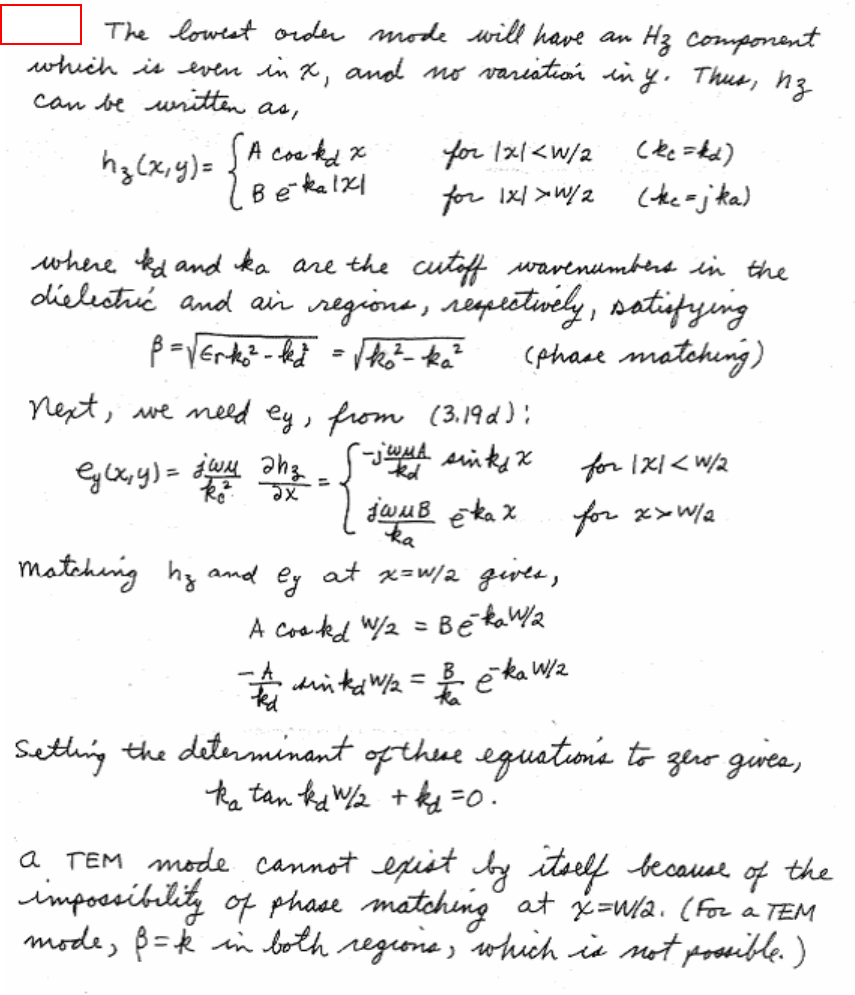 The lowest order mode will have an Hz component
which is even in x, and no variation in y. Thus, hz
can be written as,
hz(x,y) = { A cos kd x for |x| < W/2 (kc = kd)
B e^-ka|x| for |x| > W/2 (kc = jka)
where kd and ka are the cutoff wavenumbers in the
dielectric and air regions, respectively, satisfying
β = √(εr k0² - kd²) = √(k0² - ka²) (phase matching)
Next, we need ey, from (3.19d):
ey(x,y) = jωμ/kc² ∂hz/∂x = { -jωμA/kd sin kd x for |x| < W/2
jωμB/ka e^-ka x for x > W/2
Matching hz and ey at x=W/2 gives,
A cos kd W/2 = B e^-ka W/2
-A/kd sin kd W/2 = B/ka e^-ka W/2
Setting the determinant of these equations to zero gives,
ka tan kd W/2 + kd = 0.
A TEM mode cannot exist by itself because of the
impossibility of phase matching at x=W/2. (For a TEM
mode, β=k in both regions, which is not possible.)